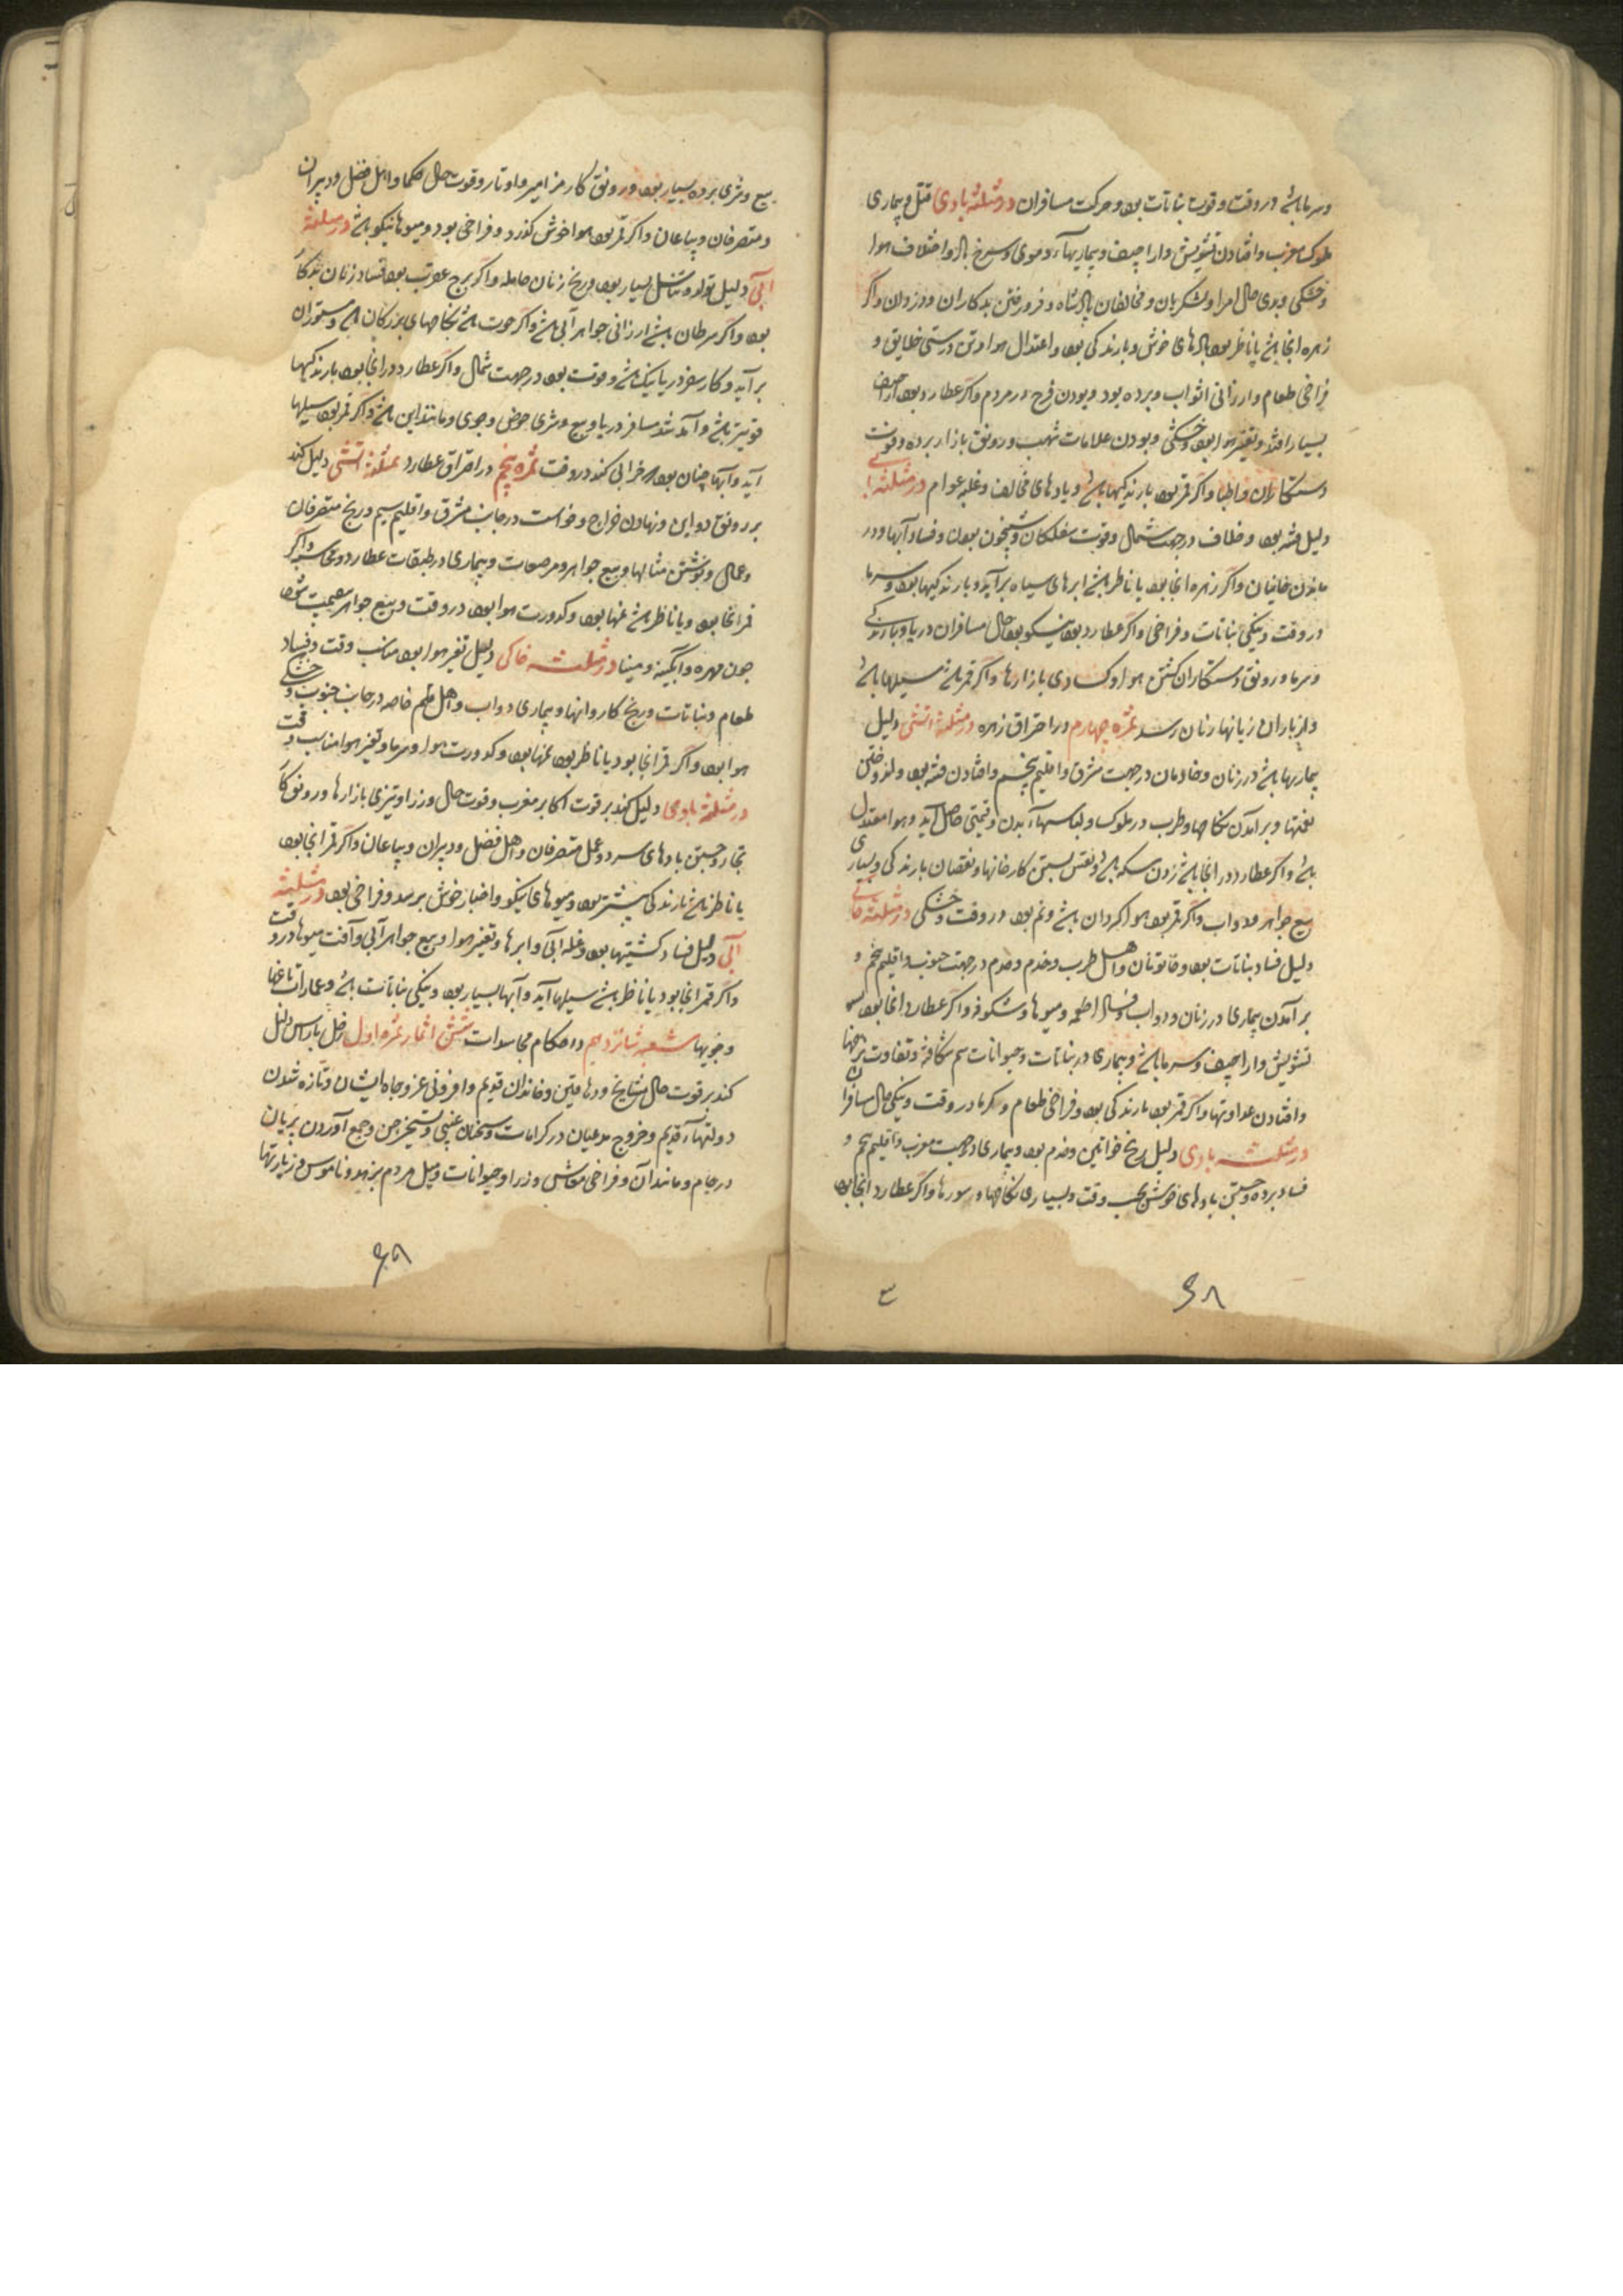 وسرما باشد در وقت وقوت نباتات بود وحرکت مسافران در مثلثه بادی قتل وبیماری
ملوک مغرب وافتادن تشویش واراجیف وبیماریهاء دموی وسرخ باد واختلاف هوا
وخشکی وبدی حال امرا ولشکریان ومخالفان پادشاه وفرو رفتن بدکاران ودزدان واگر
زهره انجا باشد یا ناظر بود بادهای خوش وبارندکی بود واعتدال هوا وتن درستی خلایق و
فراخی طعام وارزانی اثواب وبرده بود وبودن فرح در مردم واگر عطارد بود اراجیف
بسیار افتد وتغیر هوا بود وخشکی وبودن علامات شهب ورونق بازار برده وقوت
دستکاران واطبا واگر قمر بود بارندکیها باشد وبادهای مخالف وغلبه عوام در مثلثه ابی
دلیل فتنه بود وخلاف در جهت شمال وقوت سفلکان وشبیخون بودن وفساد آبها ودر
ماندن خاینان واگر زهره انجا بود یا ناظر باشد ابرهای سیاه برآید وبارندکیها بود وسرما
در وقت ونیکی نباتات وفراخی واگر عطارد بود نیکو بود حال مسافران دریا وبارندکی
وسرما ورونق دستکاران کشتن هوا وکسادی بازارها واگر قمر باشد سیلها باشد
واز باران زیانها رسد ثمره چهارم در احتراق زهره در مثلثه اتشی دلیل
بیماریها باشد در زنان وخادمان در جهت مشرق واقلیم پنجم وافتادن فتنه بود
نعمتها وبرآمدن نکاحها وطرب در ملوک ولباسهاء قیمتی حاصل آید وهوا معتدل
باشد واگر عطارد در انجا باشد زدن سکه باشد ونقش بستن کارخانها ونقصان بارندکی وبسیاری
بیع جواهر ودواب واگر قمر بود هوا کردان باشد ونم بود در وقت وخشکی در مثلثه خاکی
دلیل فساد نباتات بود وخاتونان واهل طرب وخدم در جهت جنوب واقلیم پنجم و
برآمدن بیماری در زنان ودواب وفساد اطعمه ومیوها وشکوفه واگر عطارد انجا بود
تشویش واراجیف وسرما باشد وبیماری در نباتات وحیوانات سم شکافته وتفاوت نرخها
وافتادن عداوتها واگر قمر بود بارندکی بود وفراخی طعام وکرما در وقت ونیکی حال مسافران
در مثلثه بادی دلیل رنج خواتین وخدم بود وبیماری در جهت مغرب واقلیم پنجم و
فساد برده وجستن بادهای خوش بحسب وقت وبسیاری نکاحها وسورها واگر عطارد انجا بود
ع
۶۸
بیع وشری برده بسیار بود ورونق کار مزامیر واوتار وقوت حال حکما واهل فضل ودبیران
ومتصرفان وبیاعان واگر قمر بود هوا خوش کذرد وفراخی بود ومیوها نیکو باشد در مثلثه
آبی دلیل تولد وتناسل بسیار بود ورنج زنان حامله واگر برج عقرب بود فساد زنان بدکار
بود واگر سرطان باشد ارزانی جواهر آبی باشد واگر حوت باشد نکاحهای بزرکان باشد ومستوران
برآید وکار سفر دریا نیک باشد وقوت بود در جهت شمال واگر عطارد در انجا بود بارندکیها
قویتر باشد وآمد شد مسافر دریا وبیع وشری حوض وجوی ومانند این باشد واگر قمر بود سیلها
آید وآبها چنان بود که خرابی کند در وقت ثمره پنجم در احتراق عطارد بمثلثه اتشی دلیل کند
بر رونق دواوین ونهادن خراج وخواست در جانب مشرق واقلیم سیم ورنج متصرفان
وعمال ونوشتن مثالها وبیع جواهر ومرصعات وبیماری در طبقات عطارد واگر
قمر انجا بود ویا ناظر باشد غمها بود وکدورت هوا بود در وقت وبیع جواهر شود
چون مهره وآبکینه ومینا در مثلثه خاکی دلیل تغیر هوا بود مناسب وقت وفساد
طعام ونباتات ورنج کاروانها وبیماری دواب واهل قلم خاصه در جانب جنوب وخشکی
هوا بود واگر قمر انجا بود یا ناظر بود غمها بود وکدورت هوا وسرما وتغیر هوا مناسب وقت
در مثلثه بادی دلیل کند بر قوت اکابر مغرب وقوت حال وزرا وتیزی بازارها ورونق کار
تجار وجستن بادهای سرد وعمل متصرفان واهل فضل ودبیران وبیاعان واگر قمر انجا بود
یا ناظر باشد بارندکی بیشتر بود ومیوهای نیکو واخبار خوش برسد وفراخی بود در مثلثه
آبی دلیل فساد کشتیها بود وغله آبی وابرها وتغیر هوا وبیع جواهر آبی وآفت میوها در وقت
واگر قمر انجا بود یا ناظر باشد سیلها آید وآبها بسیار بود ونیکی نباتات باشد وعمارات باغها
وجویها شعبه شانزدهم در احکام مجاسدات شش اثمار ثمره اول زحل باراس دلیل
کند بر قوت حال مشایخ ودهاقین وخاندان قدیم وافزونی عز وجاه ایشان وتازه شدن
دولتهاء قدیم وخروج مدعیان در کرامات وسخنان غیبی وتسخیر جن وجمع آوردن پریان
در جام ومانند آن وفراخی معاش وزرا وحیوانات ومیل مردم بزهد وناموس وزیارتها
۶۹